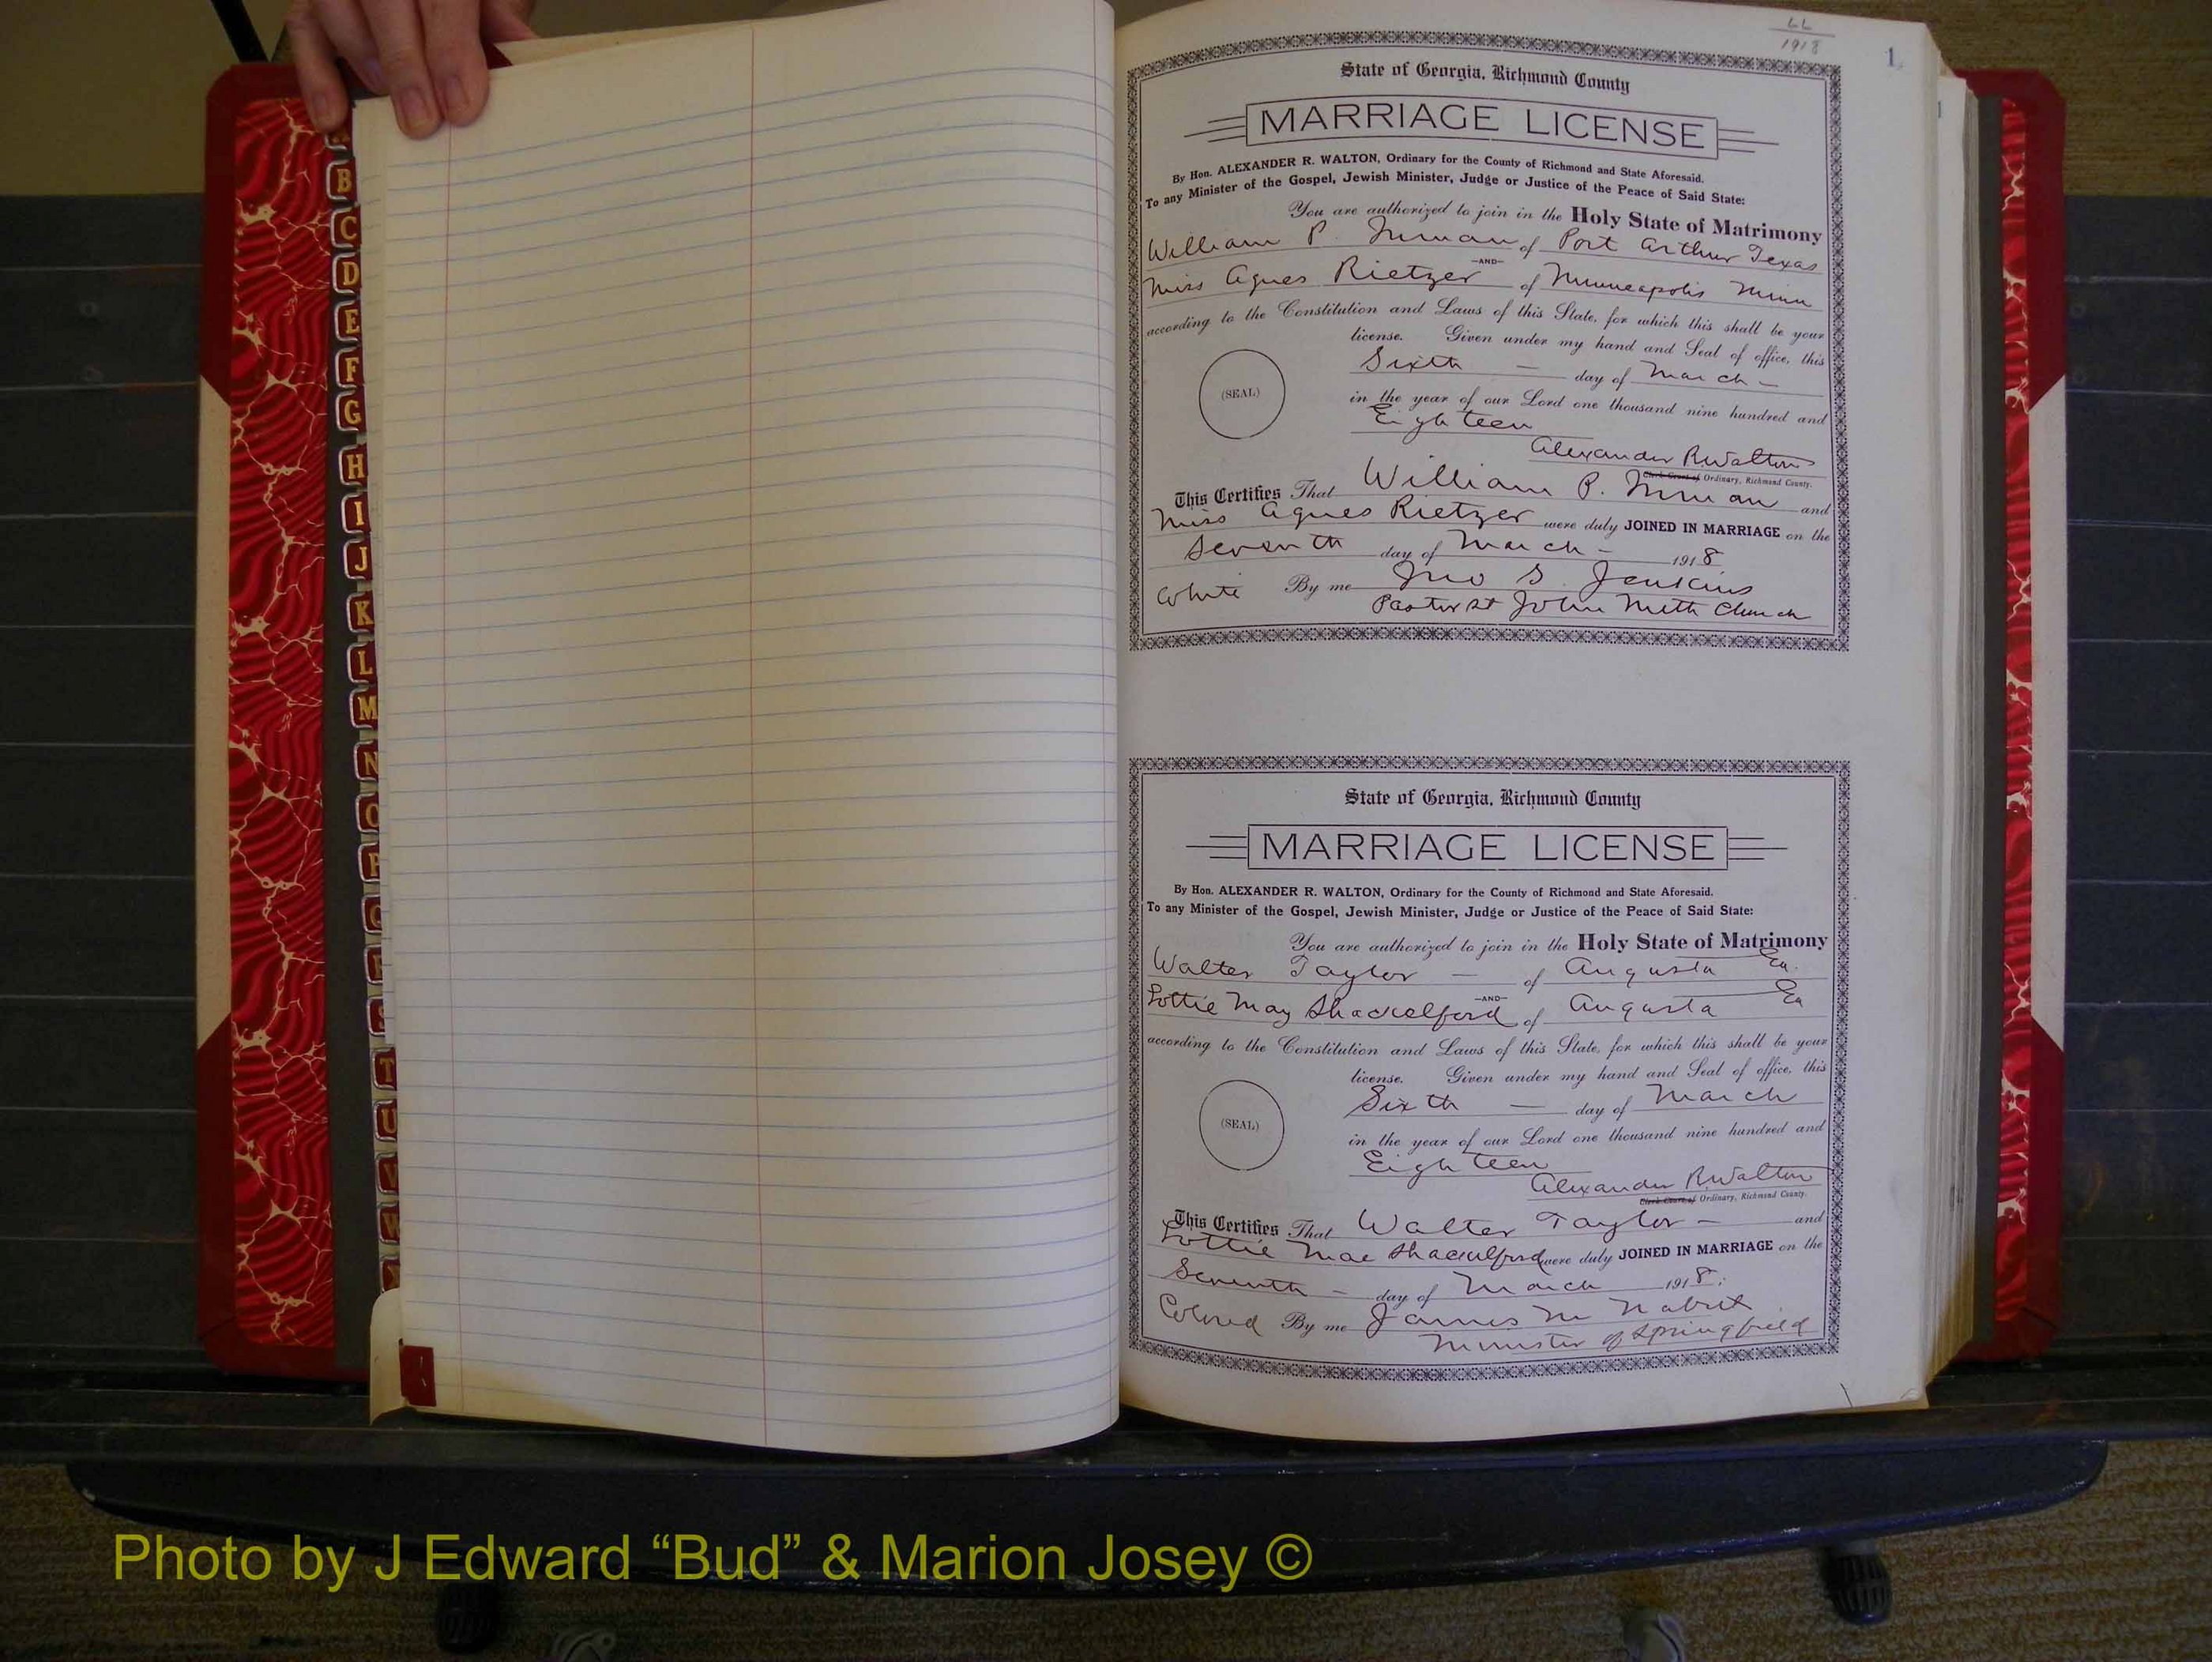 LL
1918
1.
State of Georgia, Richmond County
MARRIAGE LICENSE
By Hon. ALEXANDER R. WALTON, Ordinary for the County of Richmond and State Aforesaid.
To any Minister of the Gospel, Jewish Minister, Judge or Justice of the Peace of Said State:
You are authorized to join in the Holy State of Matrimony
William P. Inman of Port Arthur Texas
-AND-
Miss Agnes Rietzer of Minneapolis Minn
according to the Constitution and Laws of this State, for which this shall be your
license. Given under my hand and Seal of office, this
Sixth — day of March —
(SEAL)
in the year of our Lord one thousand nine hundred and
Eighteen
Alexander R. Walton
Clerk Court of Ordinary, Richmond County.
This Certifies That William P. Inman and
Miss Agnes Rietzer were duly JOINED IN MARRIAGE on the
Seventh day of March — 1918
White By me Jno S. Jenkins
Pastor St John Meth Church
State of Georgia, Richmond County
MARRIAGE LICENSE
By Hon. ALEXANDER R. WALTON, Ordinary for the County of Richmond and State Aforesaid.
To any Minister of the Gospel, Jewish Minister, Judge or Justice of the Peace of Said State:
You are authorized to join in the Holy State of Matrimony
Walter Taylor — of Augusta Ga.
-AND-
Lottie May Shackelford of Augusta Ga
according to the Constitution and Laws of this State, for which this shall be your
license. Given under my hand and Seal of office, this
Sixth — day of March
(SEAL)
in the year of our Lord one thousand nine hundred and
Eighteen
Alexander R. Walton
Clerk Court of Ordinary, Richmond County.
This Certifies That Walter Taylor — and
Lottie Mae Shackelford were duly JOINED IN MARRIAGE on the
Seventh — day of March 1918.
Colored By me James M Nabrit
Minister of Springfield
B
C
D
E
F
G
H
I
J
K
L
M
N
O
P
Q
R
S
T
U
V
W
Photo by J Edward “Bud” & Marion Josey ©